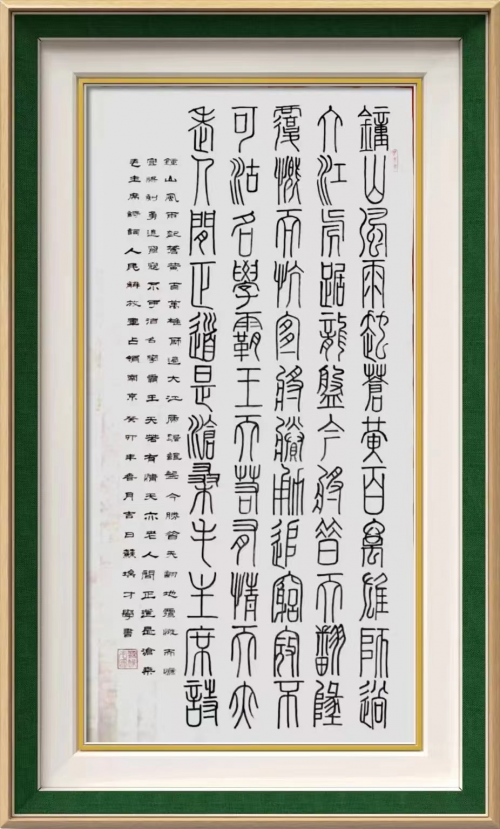 鐘山風雨起蒼黃百萬雄師過
大江虎踞龍盤今勝昔天翻地
覆慨而慷宜將剩勇追窮寇不
可沽名學霸王天若有情天亦
老人間正道是滄桑毛主席詩
鐘山風雨起蒼黃百萬雄師過大江虎踞龍盤今勝昔天翻地覆慨而慷
宜將剩勇追窮寇不可沽名學霸王天若有情天亦老人間正道是滄桑
毛主席詩詞人民解放軍占領南京癸卯年春月吉日蘇才學書